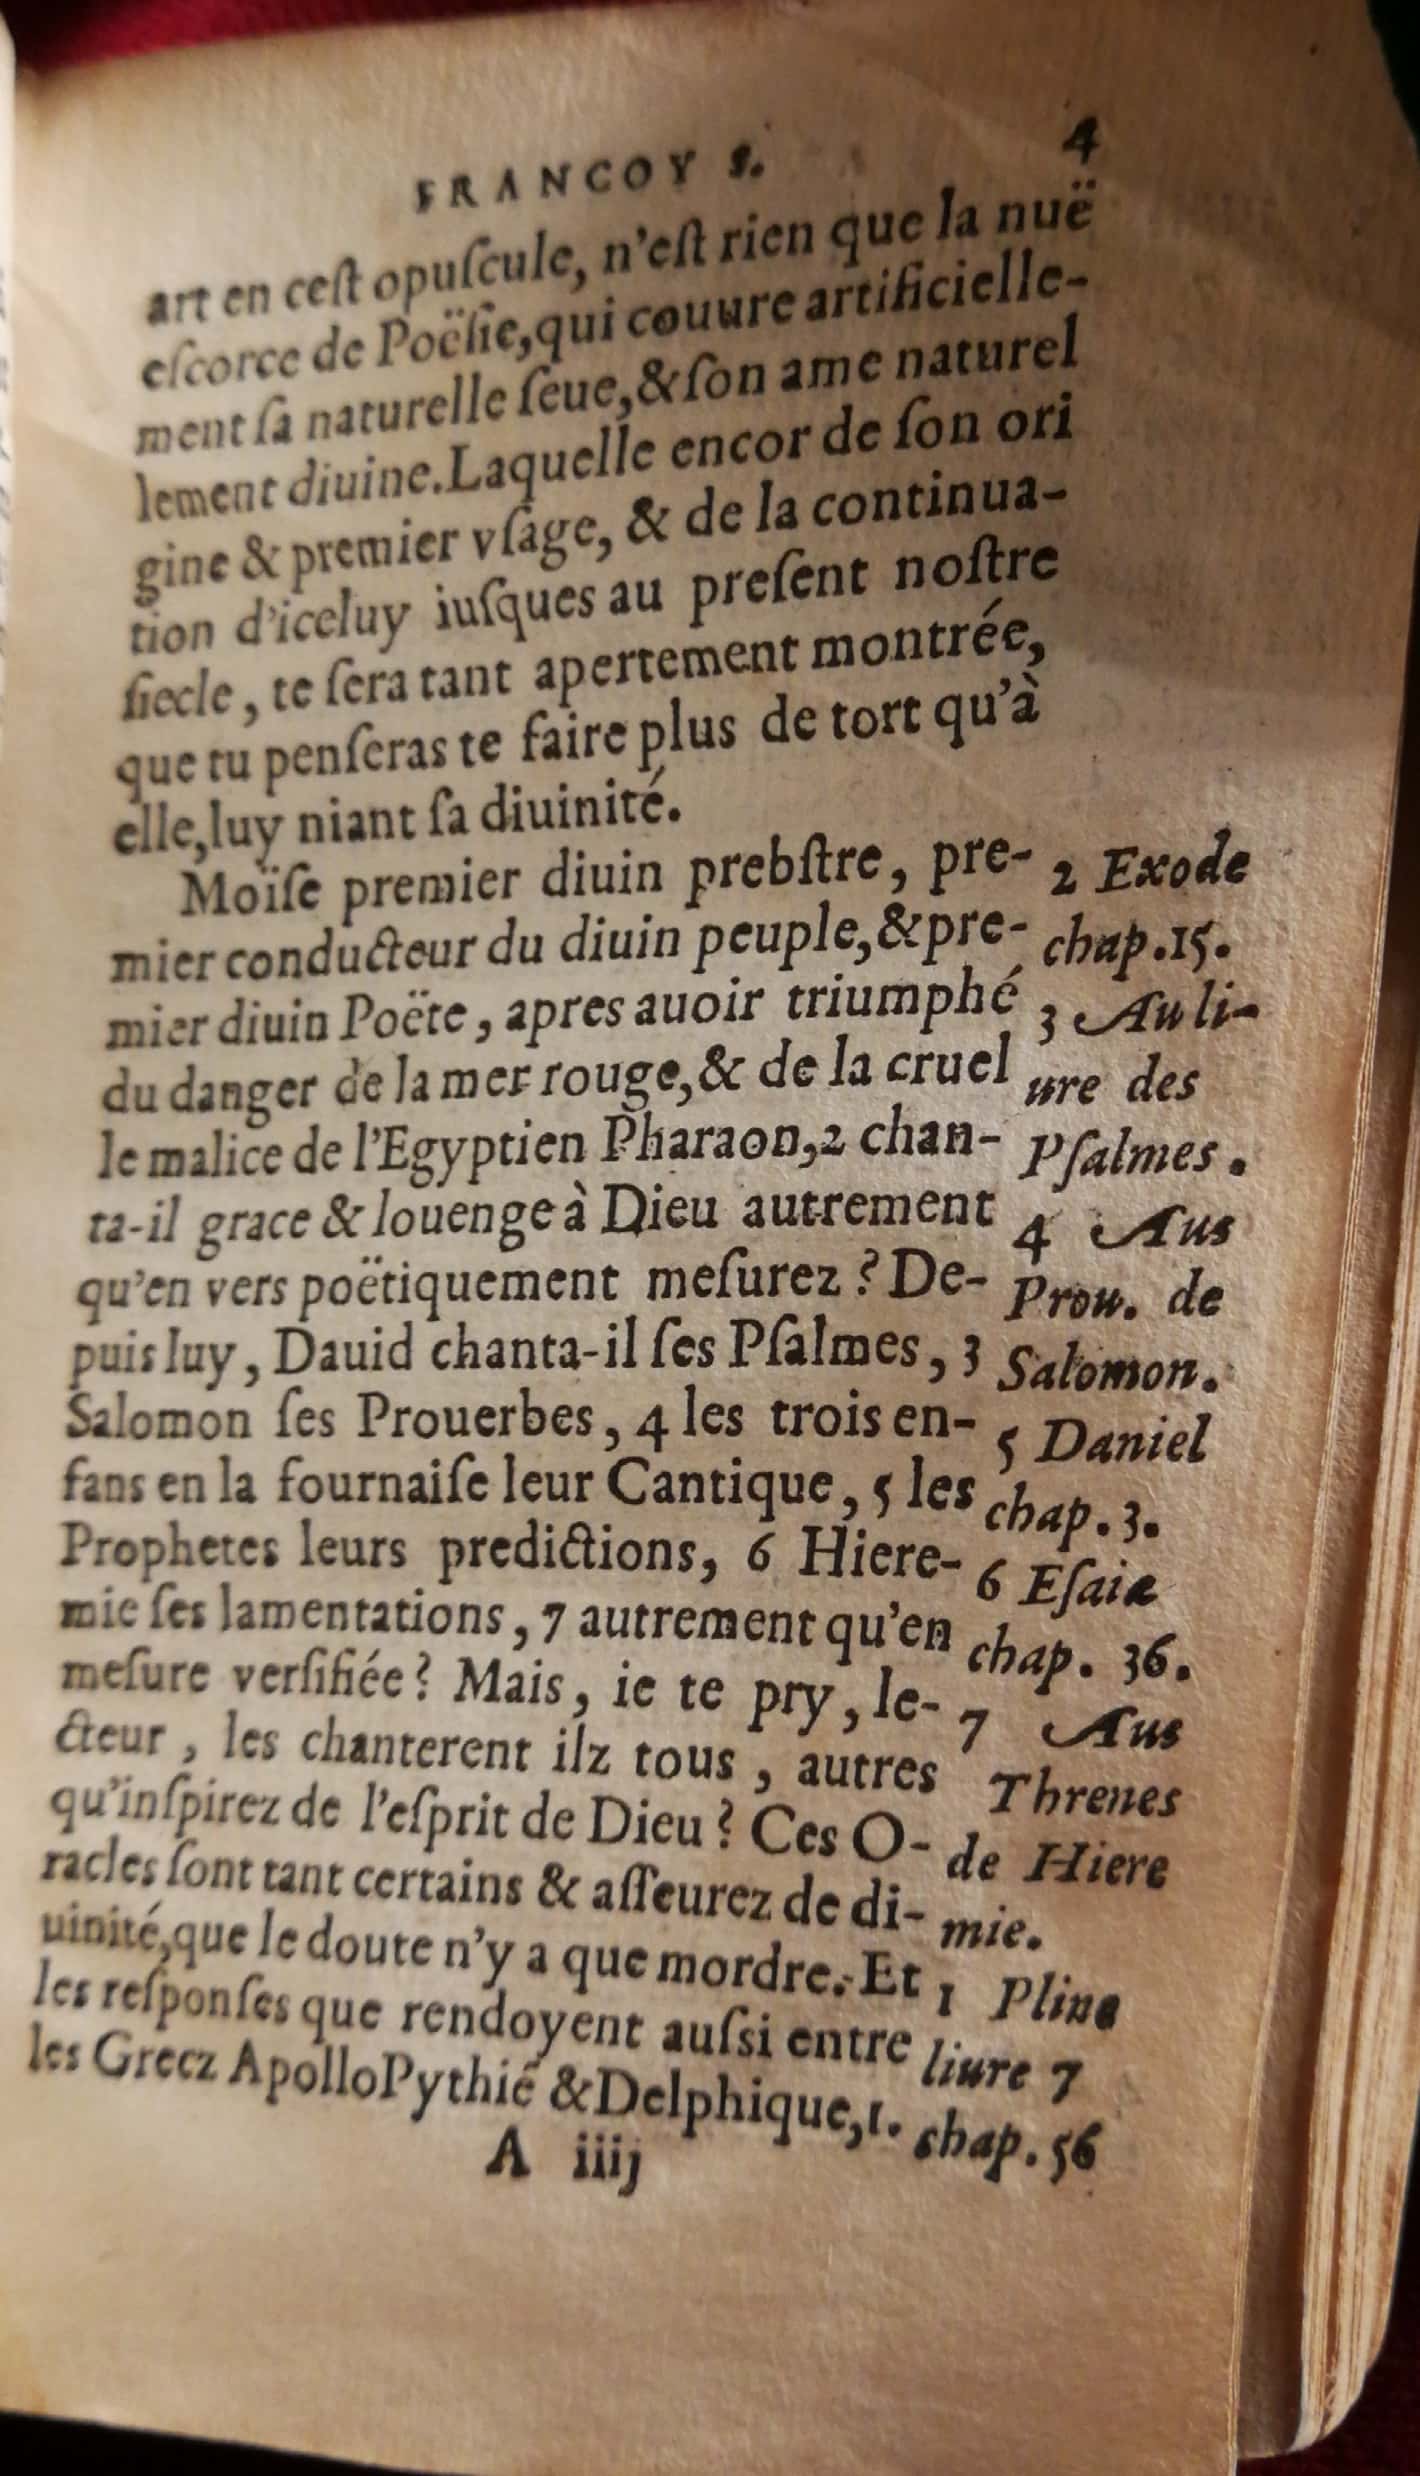 FRANCOYS.
4
art en ceſt opuſcule, n'eſt rien que la nuë
eſcorce de Poëſie,qui couure artificielle-
ment ſa naturelle ſeue,&ſon ame naturel
lement diuine.Laquelle encor de ſon ori
gine & premier vſage, & de la continua-
tion d'iceluy iuſques au preſent noſtre
ſiecle, te ſera tant apertement montrée,
que tu penſeras te faire plus de tort qu'à
elle,luy niant ſa diuinité.
Moïſe premier diuin prebſtre, pre-
mier conducteur du diuin peuple,&pre-
mier diuin Poëte, apres auoir triumphé
du danger de la mer rouge,& de la cruel
le malice de l'Egyptien Pharaon,2 chan-
ta-il grace & louenge à Dieu autrement
qu'en vers poëtiquement meſurez? De-
puis luy, Dauid chanta-il ſes Pſalmes, 3
Salomon ſes Prouerbes, 4 les trois en-
fans en la fournaiſe leur Cantique, 5 les
Prophetes leurs predictions, 6 Hiere-
mie ſes lamentations, 7 autrement qu'en
meſure verſifiée? Mais, ie te pry, le-
cteur, les chanterent ilz tous, autres
qu'inſpirez de l'eſprit de Dieu? Ces O-
racles ſont tant certains & aſſeurez de di-
uinité,que le doute n'y a que mordre. Et
les reſponſes que rendoyent auſsi entre
les Grecz Apollo Pythié &Delphique,1.
A iiij
2 Exode
chap.15.
3 Au li-
ure des
Pſalmes.
4 Aus
Prou. de
Salomon.
5 Daniel
chap. 3.
6 Eſaie
chap. 36.
7 Aus
Threnes
de Hiere
mie.
1 Pline
liure 7
chap. 56